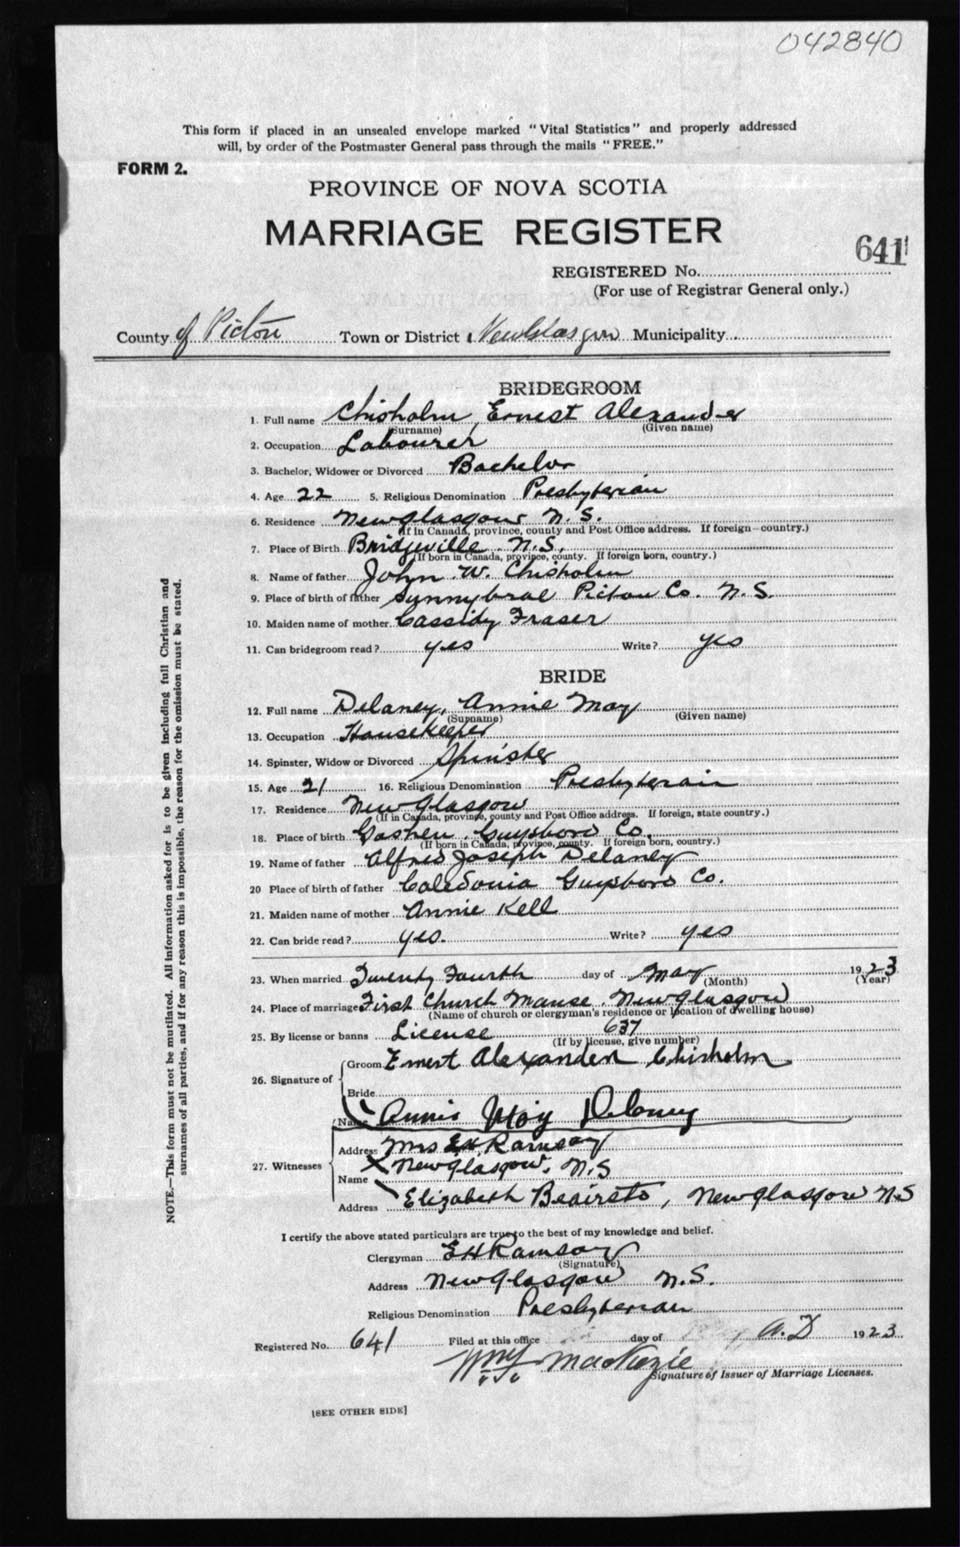 042840
This form if placed in an unsealed envelope marked "Vital Statistics" and properly addressed
will, by order of the Postmaster General pass through the mails "FREE."
FORM 2.
PROVINCE OF NOVA SCOTIA
MARRIAGE REGISTER
641
REGISTERED No.
(For use of Registrar General only.)
County of Pictou Town or District New Glasgow Municipality
BRIDEGROOM
1. Full name Chisholm, Ernest Alexander
(Surname) (Given name)
2. Occupation Labourer
3. Bachelor, Widower or Divorced Bachelor
4. Age 22 5. Religious Denomination Presbyterian
6. Residence New Glasgow N.S.
(If in Canada, province, county and Post Office address. If foreign—country.)
7. Place of Birth Bridgeville N.S.
(If born in Canada, province, county. If foreign born, country.)
8. Name of father John W. Chisholm
9. Place of birth of father Sunnybrae Pictou Co. N.S.
10. Maiden name of mother Cassidy Fraser
11. Can bridegroom read? yes Write? yes
BRIDE
12. Full name Delaney, Annie May
(Surname) (Given name)
13. Occupation Housekeeper
14. Spinster, Widow or Divorced Spinster
15. Age 21 16. Religious Denomination Presbyterain
17. Residence New Glasgow
(If in Canada, province, county and Post Office address. If foreign, state country.)
18. Place of birth Goshen Guysboro Co.
(If born in Canada, province, county. If foreign born, country.)
19. Name of father Alfred Joseph Delaney
20 Place of birth of father Caledonia Guysboro Co.
21. Maiden name of mother Annie Kell
22. Can bride read? yes. Write? yes
23. When married Twenty Fourth day of May 1923
(Month) (Year)
24. Place of marriage First Church Manse, New Glasgow
(Name of church or clergyman's residence or location of dwelling house)
25. By license or banns License 637
(If by license, give number)
26. Signature of
Groom Ernest Alexander Chisholm
Bride
Annie May Delaney
Name
27. Witnesses
Address Mrs E.H. Ramsay
New Glasgow, N.S
Name
Address Elizabeth Beairsto, New Glasgow N.S
I certify the above stated particulars are true to the best of my knowledge and belief.
Clergyman E H Ramsay
(Signature)
Address New Glasgow N.S.
Religious Denomination Presbyterian
Registered No. 641 Filed at this office day of A.D 1923
MacKenzie
Signature of Issuer of Marriage Licenses.
[SEE OTHER SIDE]
NOTE.—This form must not be mutilated. All information asked for is to be given including full Christian and
surnames of all parties, and if for any reason this is impossible, the reason for the omission must be stated.